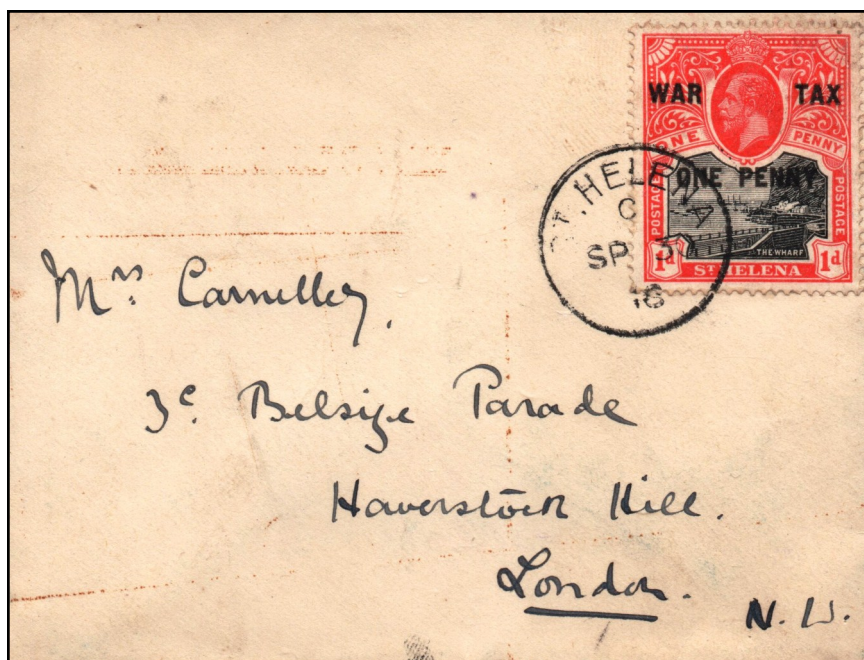 WAR TAX
ONE PENNY
ONE PENNY
POSTAGE POSTAGE
THE WHARF
1d ST HELENA 1d
ST. HELENA
C
SP 3
16
Mrs Carnelley,
3c. Belsize Parade
Haverstock Hill.
London.
N. W.